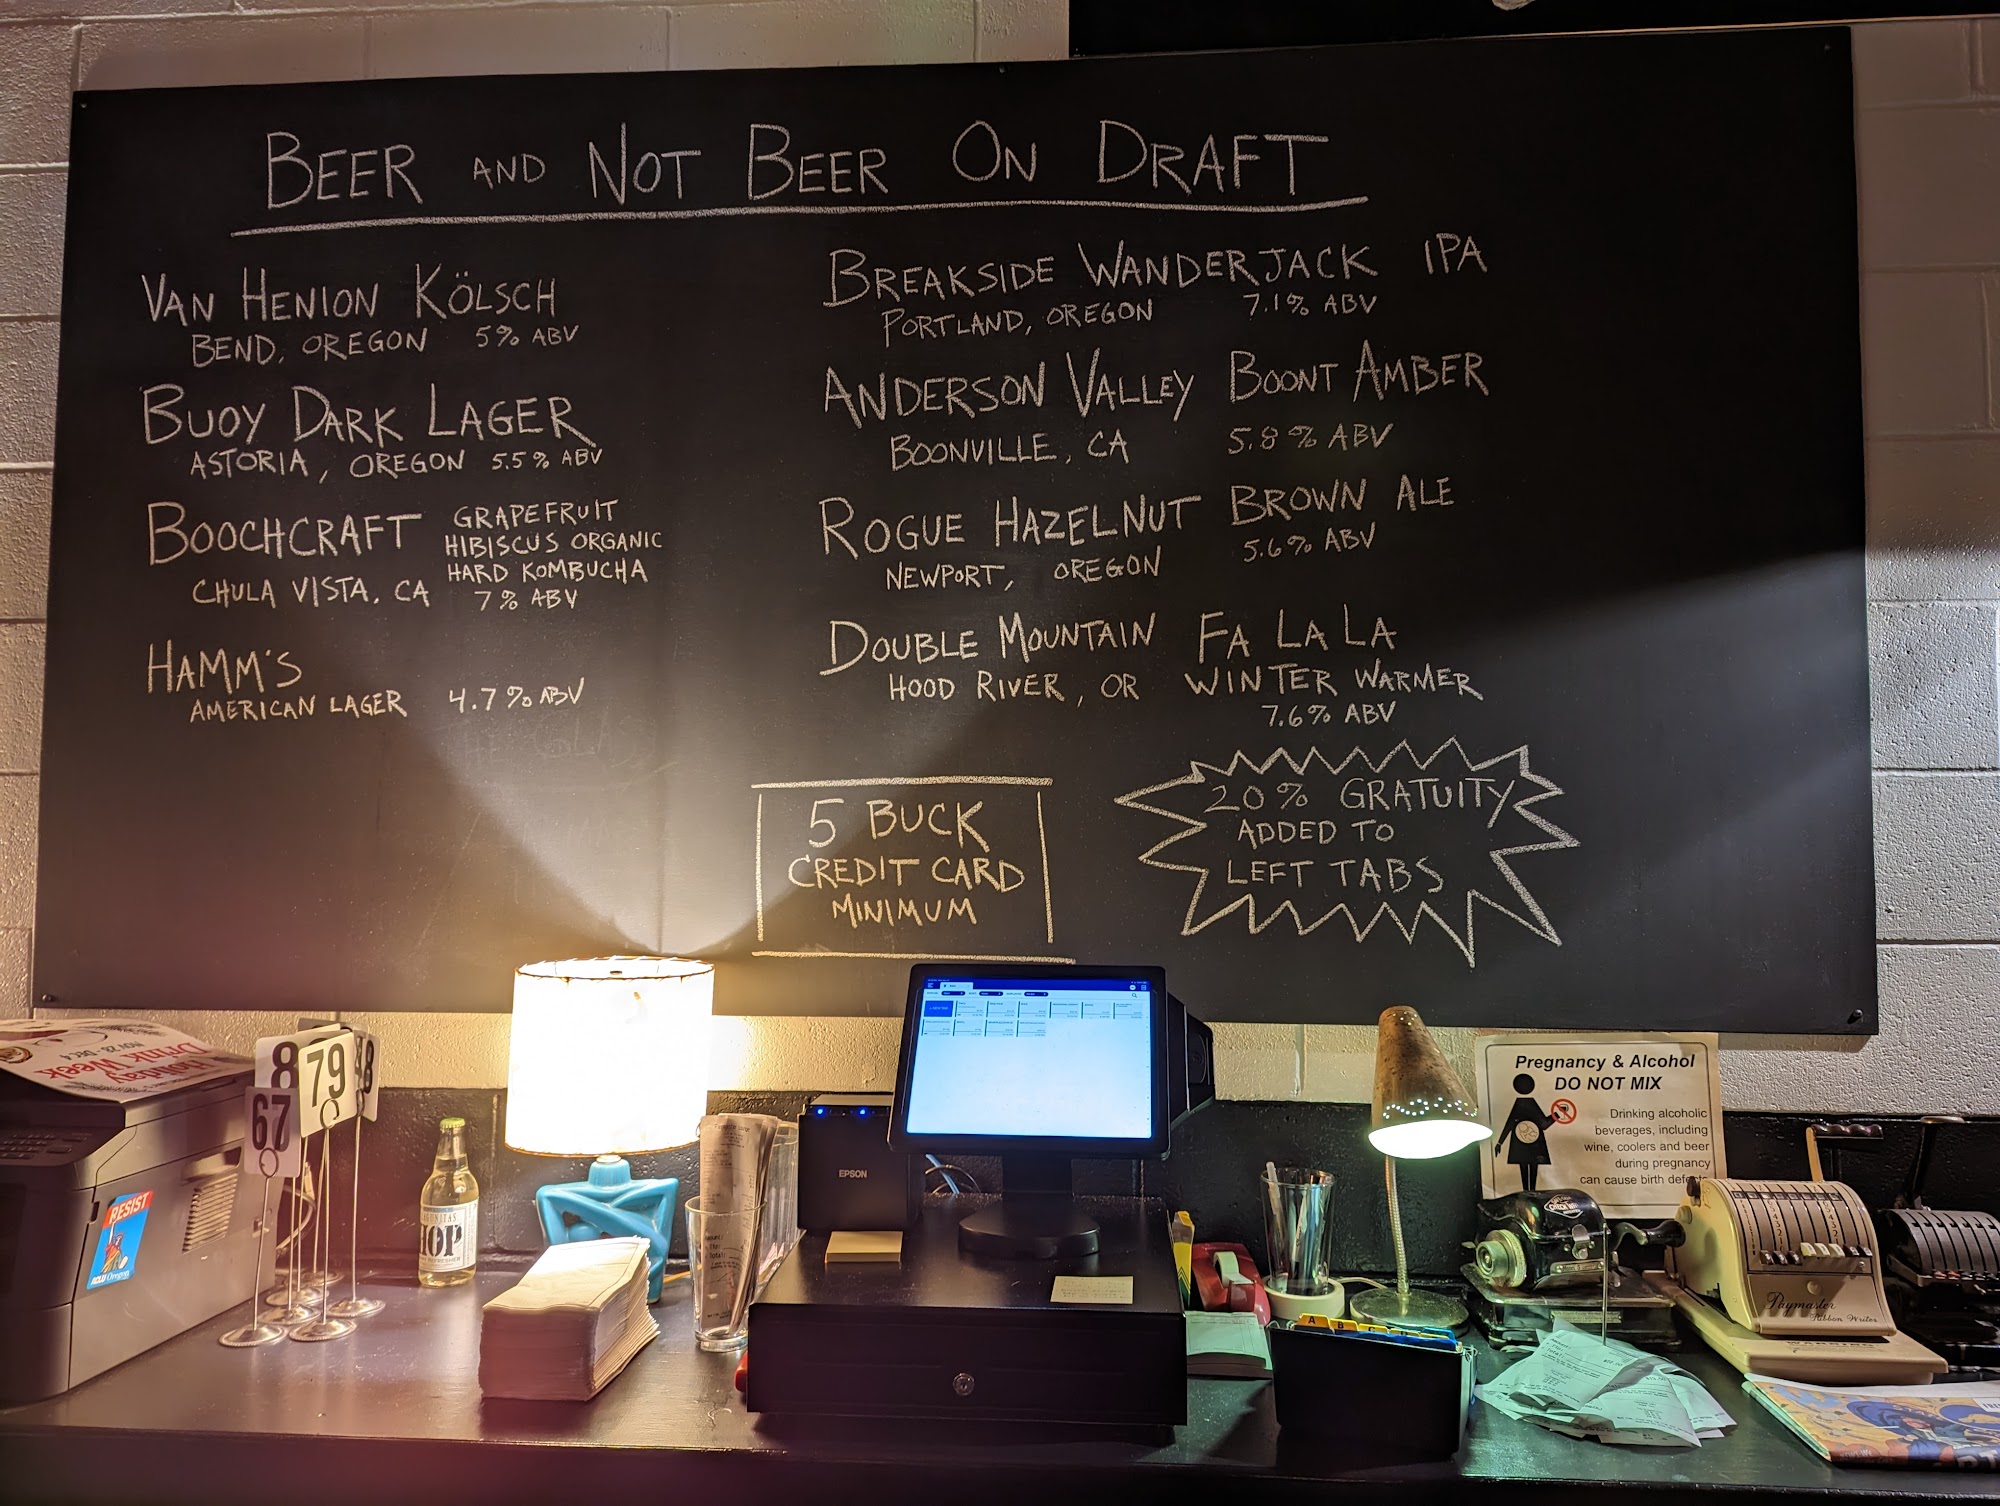 BEER AND NOT BEER ON DRAFT
VAN HENION KÖLSCH
BEND, OREGON 5% ABV
BUOY DARK LAGER
ASTORIA, OREGON 5.5% ABV
BOOCHCRAFT GRAPEFRUIT
HIBISCUS ORGANIC
HARD KOMBUCHA
CHULA VISTA, CA 7% ABV
HAMM'S
AMERICAN LAGER 4.7% ABV
BREAKSIDE WANDERJACK IPA
PORTLAND, OREGON 7.1% ABV
ANDERSON VALLEY BOONT AMBER
BOONVILLE, CA 5.8% ABV
ROGUE HAZELNUT BROWN ALE
NEWPORT, OREGON 5.6% ABV
DOUBLE MOUNTAIN FA LA LA
HOOD RIVER, OR WINTER WARMER
7.6% ABV
5 BUCK
CREDIT CARD
MINIMUM
20% GRATUITY
ADDED TO
LEFT TABS
Drink Week
NOV 28 - DEC 4
8
79
67
8
RESIST
ACLU Oregon
HOP
EPSON
Pregnancy & Alcohol
DO NOT MIX
Drinking alcoholic
beverages, including
wine, coolers and beer
during pregnancy
can cause birth defects
A B C D
Total:
Paymaster
Ribbon Writer
WARNING